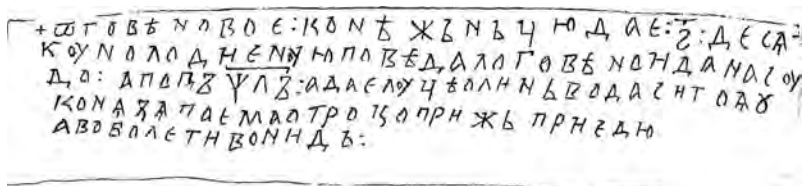 +ѿговѣновое:конѣжьньцюдае:з҃:десѧ
коунолодиеноуюповѣдалоговѣноиданасоу
до:апопъѱлъ:адаелоуцѣолиньводаситоѧꙋ
конаѧапаемаотроцоприжьприедю
авоболетивоидѣ: